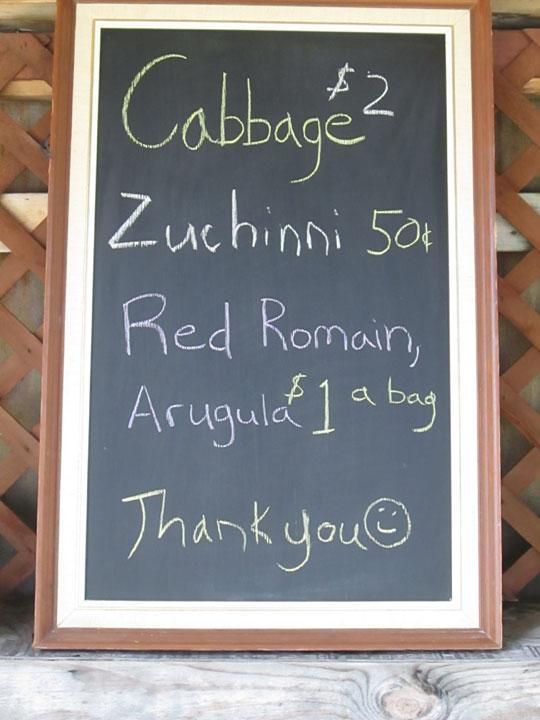 Cabbage $2
Zuchinni 50¢
Red Romain,
Arugula $1 a bag
Thank you☺